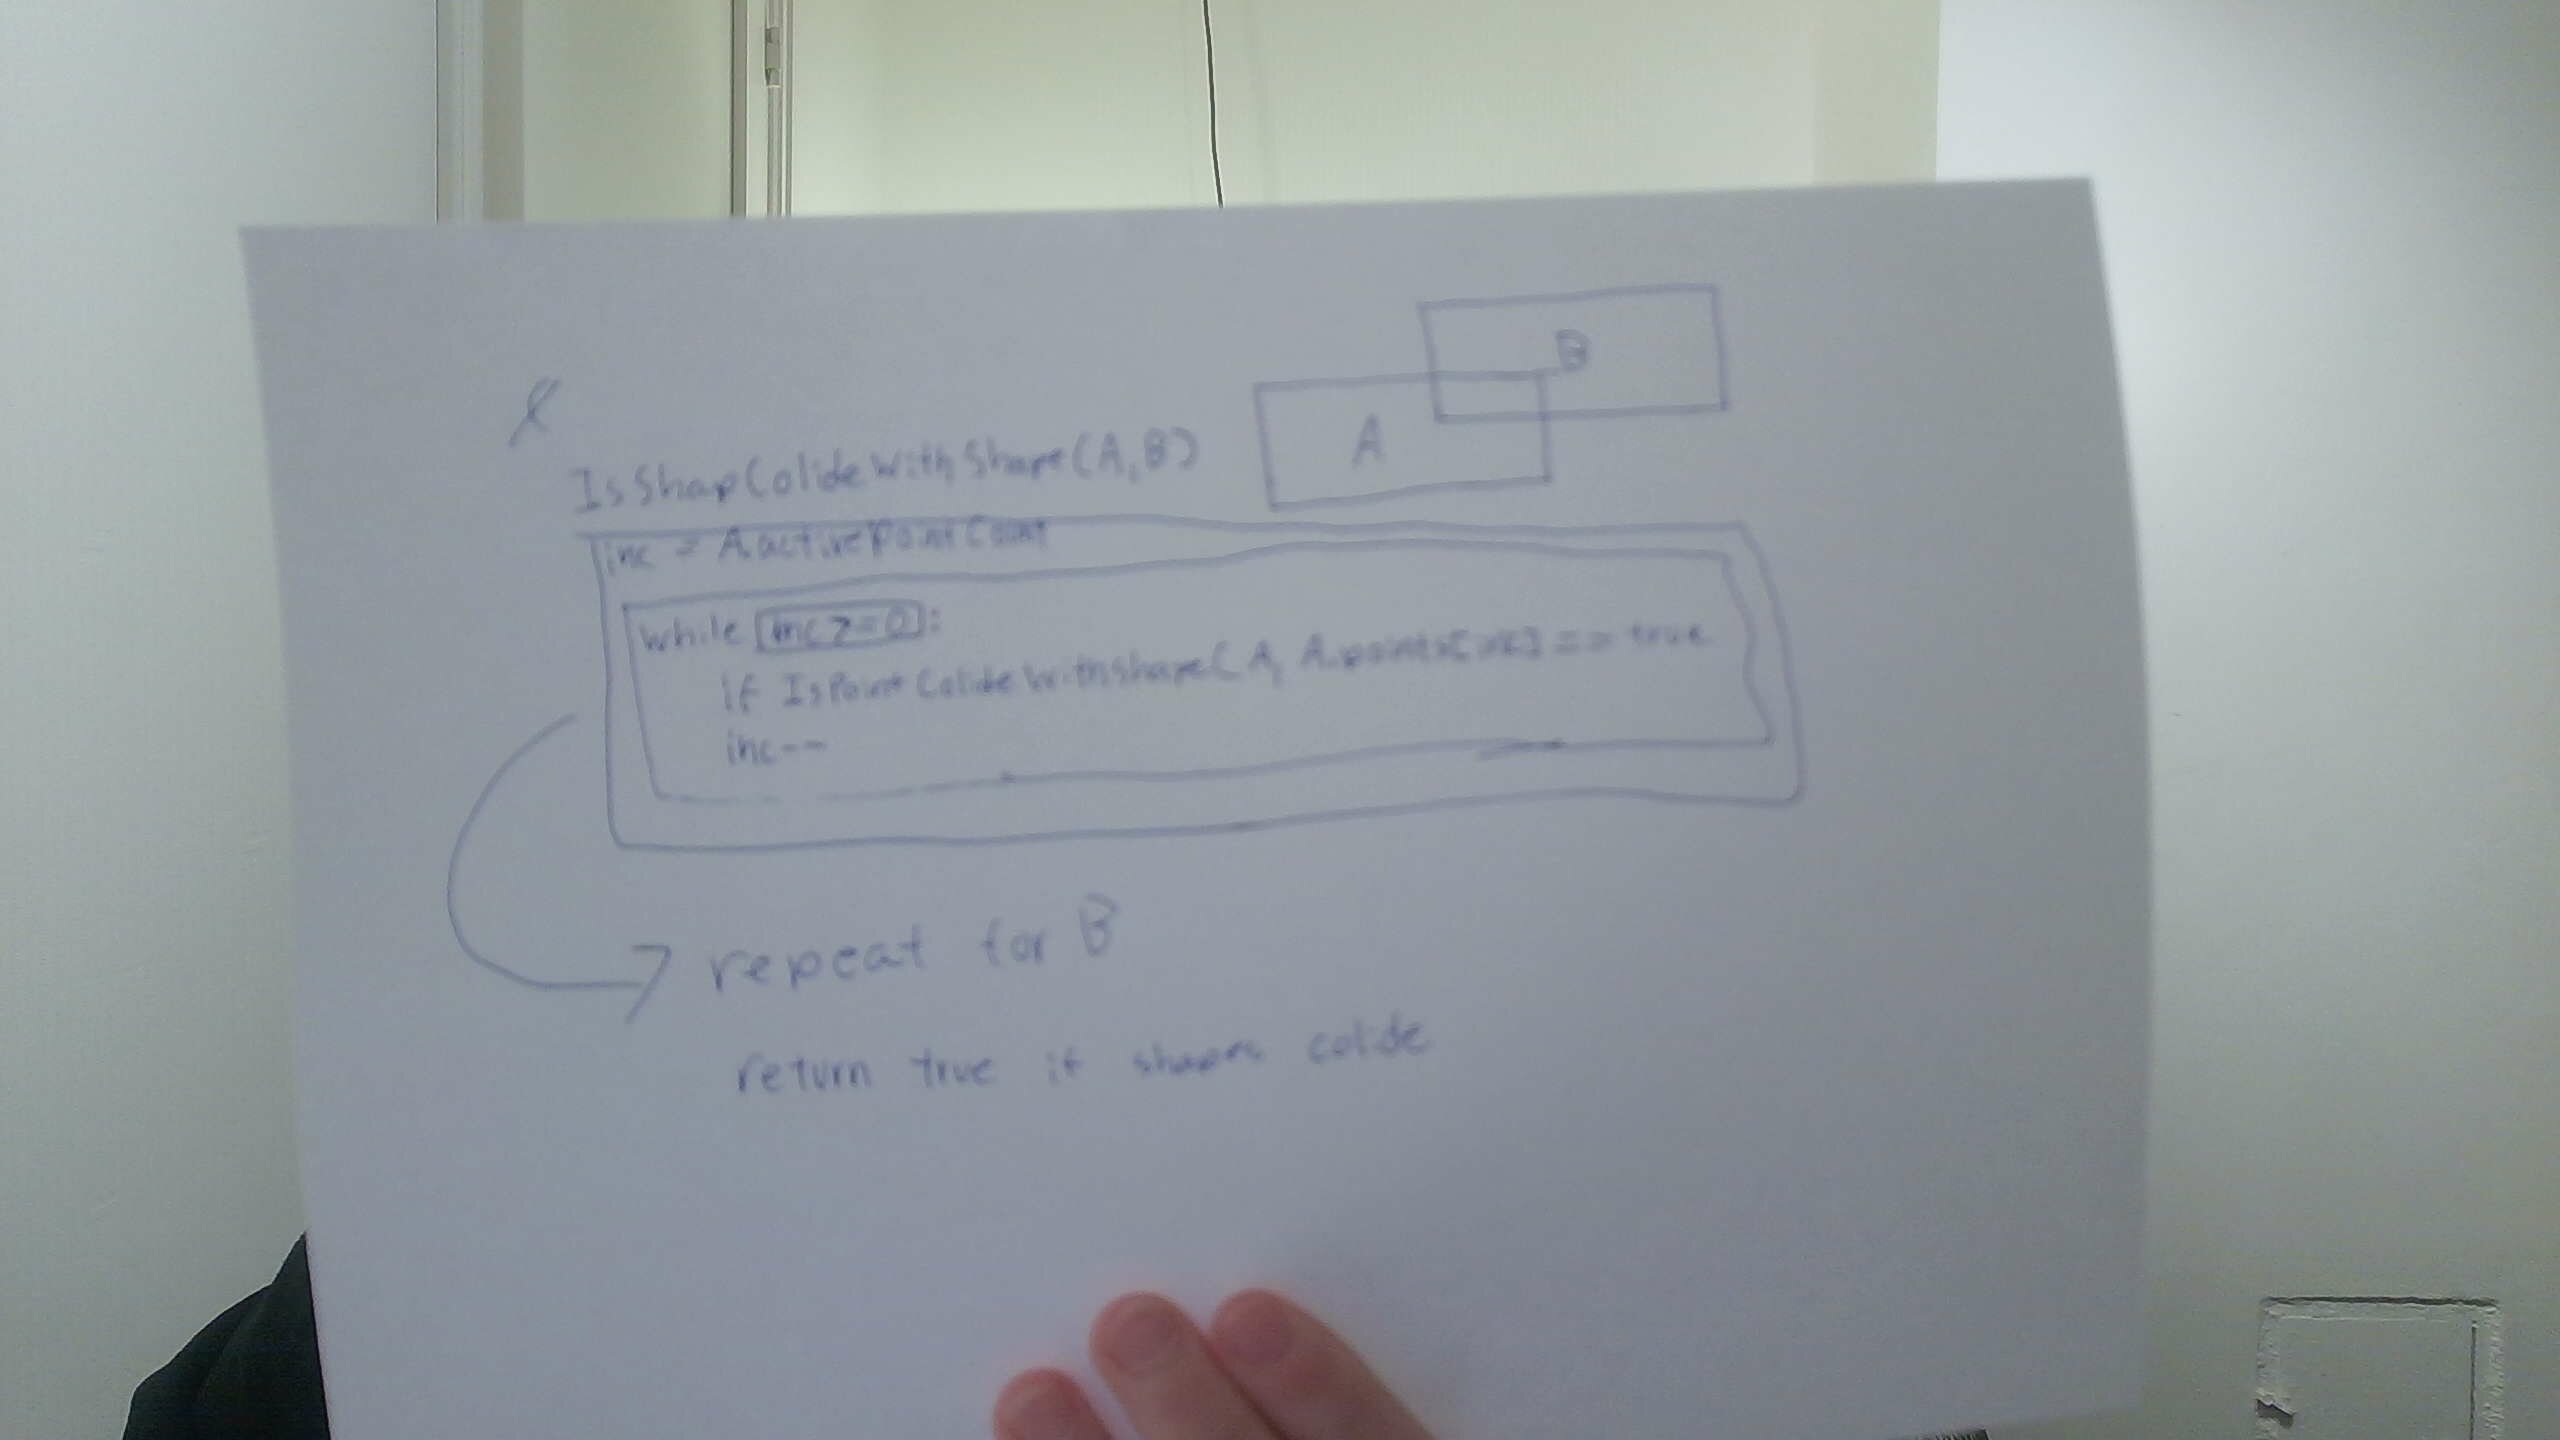 B
A
IsShapColideWithShape(A,B)
inc = A.activePointCount
while inc>=0:
if IsPointColideWithShape(A, A.points[inc] == true
inc--
repeat for B
return true if shapes colide